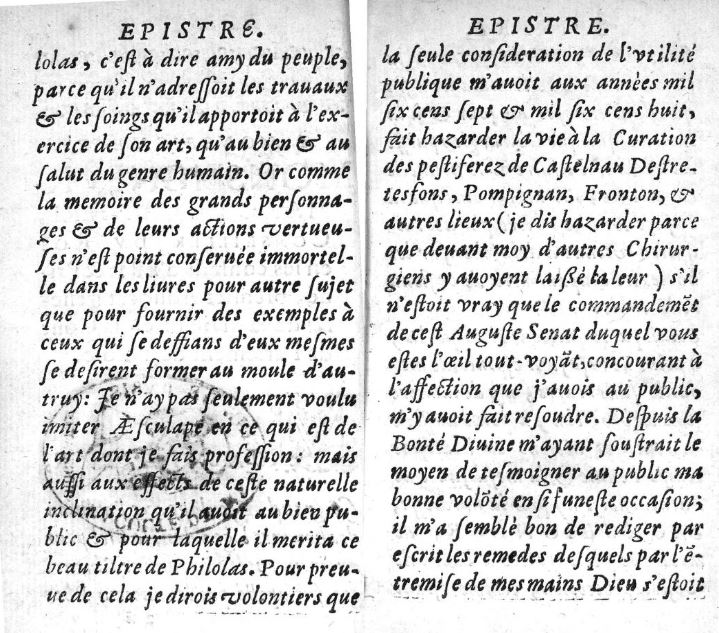 EPISTRE.
lolas, c'eſt à dire amy du peuple,
parce qu'il n'adreſſoit les trauaux
& les ſoings qu'il apportoit à l'ex-
ercice de ſon art, qu'au bien & au
ſalut du genre humain. Or comme
la memoire des grands perſonna-
ges & de leurs actions vertueu-
ſes n'eſt point conſeruée immortel-
le dans les liures pour autre ſujet
que pour fournir des exemples à
ceux qui ſe deffians d'eux meſmes
ſe deſirent former au moule d'au-
truy: Je n'ay pas ſeulement voulu
imiter Æſculape en ce qui eſt de
l'art dont je fais profeſſion: mais
auſſi aux effects de ceſte naturelle
inclination qu'il auoit au bien pu-
blic & pour laquelle il merita ce
beau tiltre de Philolas. Pour preu-
ue de cela je dirois volontiers que
EPISTRE.
la ſeule conſideration de l'vtilité
publique m'auoit aux annèes mil
ſix cens ſept & mil ſix cens huit,
fait hazarder la vie à la Curation
des peſtiferez de Caſtelnau Deſtre-
tesfons, Pompignan, Fronton, &
autres lieux (je dis hazarder parce
que deuant moy d'autres Chirur-
giens y auoyent laißé la leur) s'il
n'eſtoit vray que le commandemẽt
de ceſt Auguſte Senat duquel vous
eſtes l'œil tout-voyãt, concourant à
l'affection que j'auois au public,
m'y auoit fait reſoudre. Deſpuis la
Bonté Diuine m'ayant ſouſtrait le
moyen de teſmoigner au public ma
bonne volõté en ſi funeſte occaſion;
il m'a ſemblè bon de rediger par
eſcrit les remedes deſquels par l'ẽ-
tremiſe de mes mains Dieu s'eſtoit